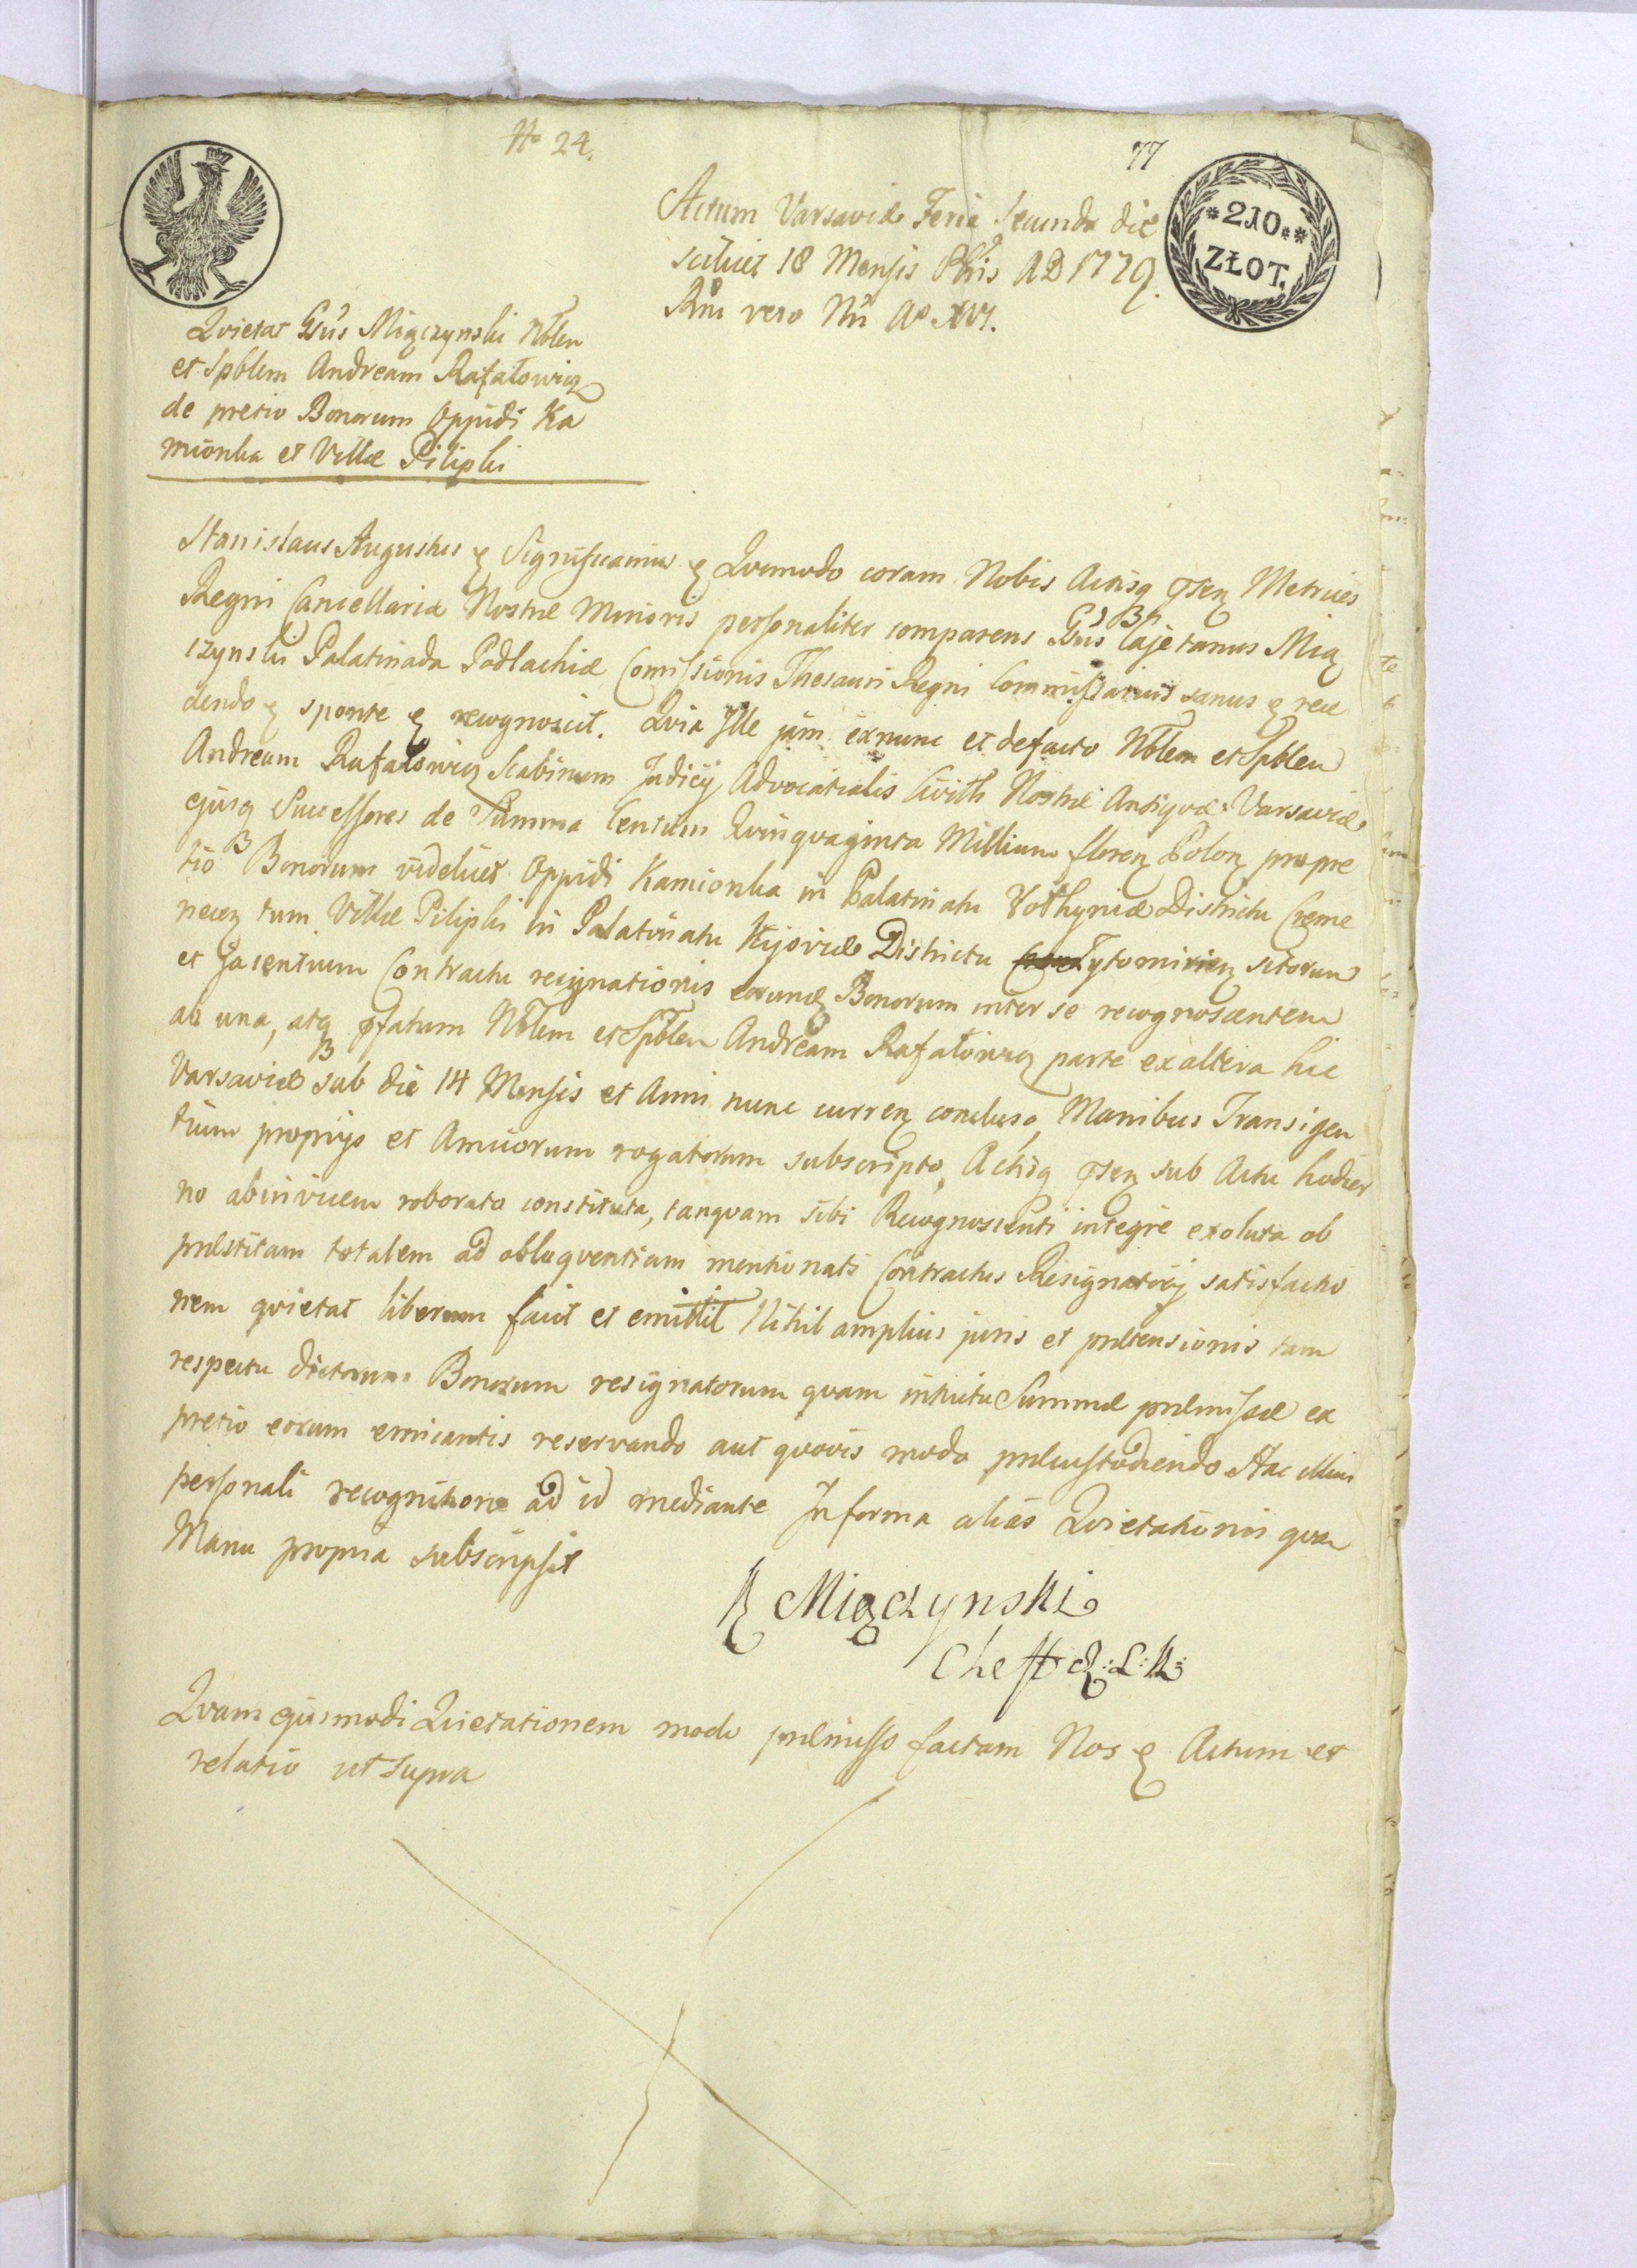 No 24.
77
*210.*
ZŁOT.
Actum Varsaviæ Feria Secunda die
scilicet 18 Mensis Xbris AD 1779.
Rni vero Nri Ao XVI.
Qvietat Gsus Miączynski Nblem
et Spblem Andream Rafałowicz
de pretio Bonorum Oppidi Ka
mionka et Villæ Pilipki
Stanislaus Augustus ę Significamus ę Qvomodo coram Nobis Actisq pnsen Metrices
Regni Cancellariæ Nostræ Minoris personaliter comparens Gsus Cajetanus Mią
czynski Palatinada Podlachiæ Comissionis Thesauri Regni Commissarius sanus ę rece
dendo ę sponte ę recognovit. Qvia Ille jam exnunc et defacto Nblem et Spblem
Andream Rafałowicz Scabinum Judicij Advocatialis Civitts Nostræ Antiqvæ Varsaviæ
ejusq Successores de Summa Centum Qvinqvaginta Millium floren Polon pro pre
tio Bonorum videlicet Oppidi Kamionka in Palatinatu Vołhyniæ Districtu Creme
necen tum Villæ Pilipki in Palatinatu Kijoviæ Districtu Zytomirien sitorum
et jacentium Contractu resignationis eorund Bonorum inter se recognoscentem
ab una, atq pfatum Nblem et Spblem Andream Rafałowicz parte ex altera hic
Varsaviæ sub die 14 Mensis et Anni nunc curren concluso, Manibus Transigen
tium proprijs et Amicorum rogatorum subscripto, Actisq pnsen sub Actu hodier
no abinvicem roborato constituta, tanqvam sibi Recognoscenti integre exoluta ob
præstitam totalem ad obloqventiam mentionati Contractus Resignatorij satisfactio
nem qvietat liberum facit et emittit Nihil amplius juris et prætensionis tam
respectu dictorum Bonorum resignatorum qvam intuitu Summæ præmissæ ex
pretio eorum emicantis reservando aut qvovis modo præcustodiendo Hac illius
personali recognitione ad id mediante In forma alias Qvietationis qvam
Manu propria subscripsit
K Miączynski
Cheff R: L: K:
Qvam ejusmodi Qvietationem modo præmisso factam Nos ę Actum et
relatio ut supra